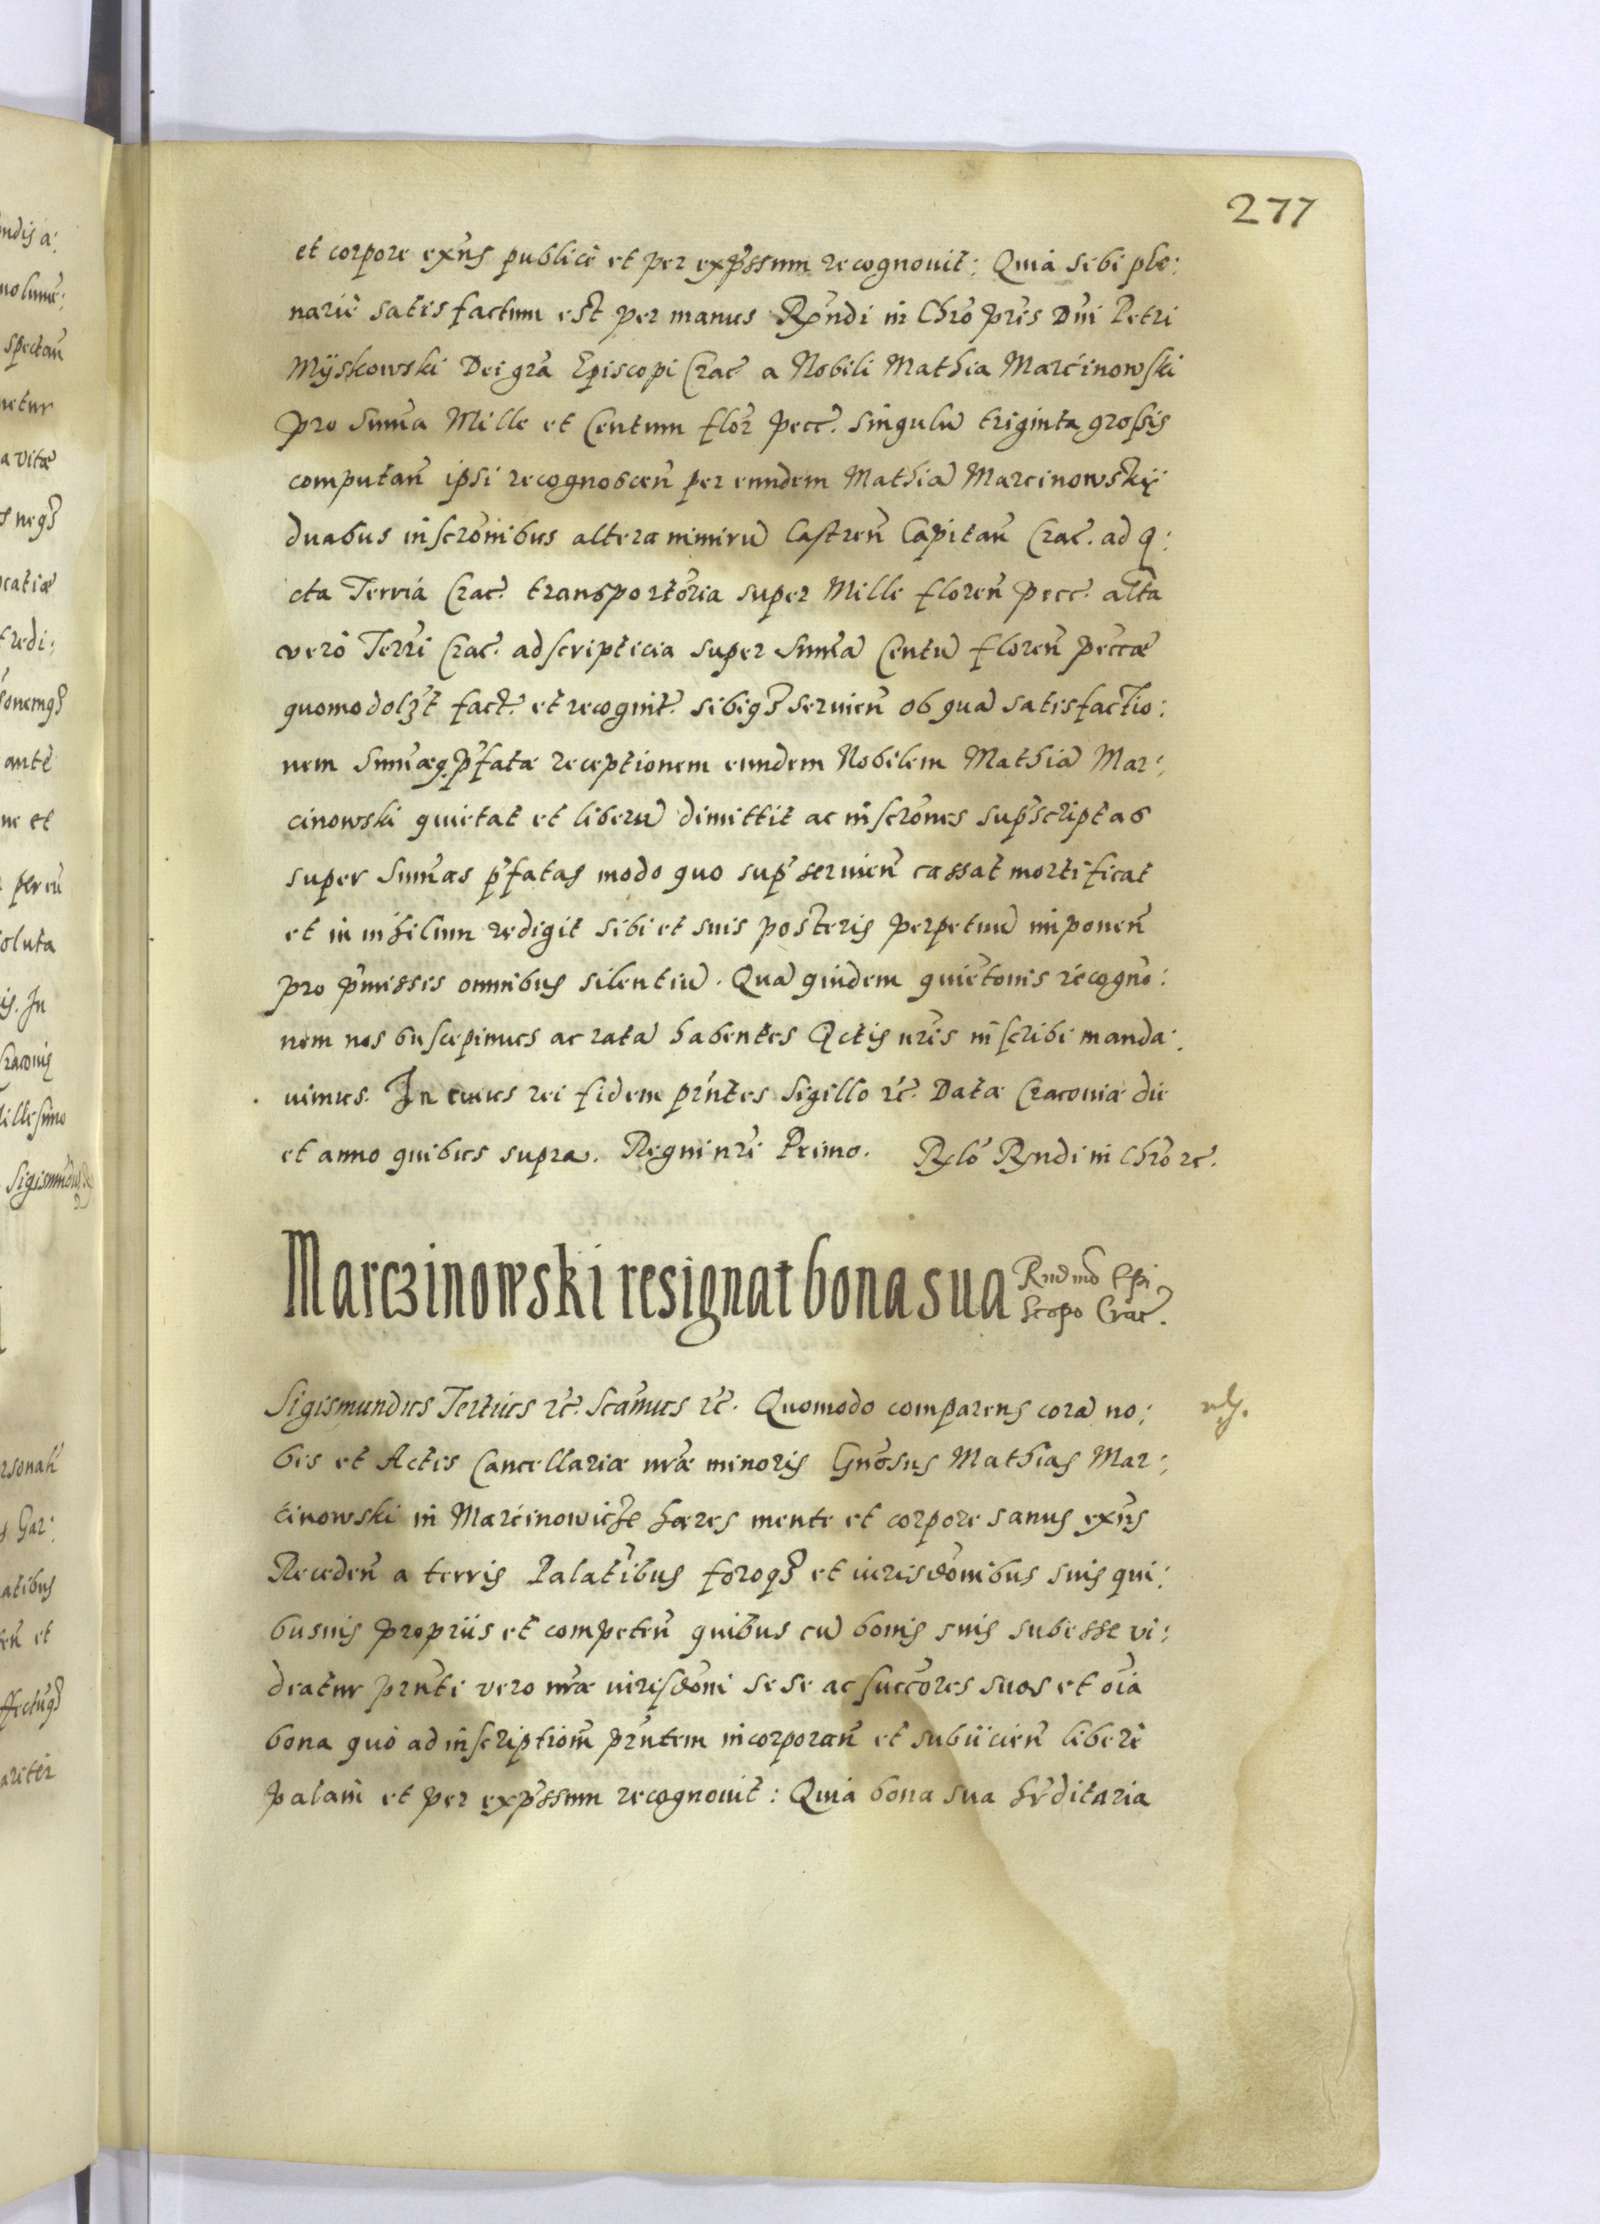 277
et corpore exñs publicè et per exp̃ssum recognouit: Quia sibi ple:
nariè satisfactum est per manus Rñdi in Chro pris Dñi Petri
Mÿskowski Dei gra Episcopi Crac̃ a Nobili Mathia Marcinowski
pro Suma Mille et Centum flor pecc̃. singulũ triginta grossis
computañ ipsi recognoscen̄ per eundem Mathiã Marcinowskÿ
duabus inscrõnibus altera nimirũ Castren̄ Capitañ Crac̃. ad a:
cta Terria Crac̃. transportõria super Mille floren̄ pecc̃. altã
verò Terri Crac̃. adscripticia super Sumã Centũ floren̄ peccæ
quomodolzt fact̃. et recognit̃. sibiq3 seruien̄ ob quã satisfactio:
nem Sumæq3 p̃fatæ receptionem eundem Nobilem Mathiã Mar:
cinowski quietat et liberũ dimittit ac inscrõnes sup̃scriptas
super Sumas p̃fatas modo quo sup̃ seruien̄ cassat mortificat
et in nihilum redigit sibi et suis posteris perpetuũ imponen̄
pro p̃missis omnibus silentiũ. Quã quidem quietõnis recogno:
nem nos suscepimus ac ratã habentes Actis nris inscribi manda:
uimus. In cuius rei fidem prñtes Sigillo rc̃. Datæ Cracouiæ die
et anno quibus supra. Regni nri Primo. Rlõ Rñdi in Chrõ rc̃.
Marczinowski resignat bona sua Rndmõ Epi
scopo Crac̃.
Sigismundus Tertius rc̃. Scãmus rc̃. Quomodo comparens corã no:
bis et Actis Cancellariæ nræ minoris Gñosus Mathias Mar:
cinowski in Marcinowicze hæres mente et corpore sanus exñs
Receden̄ a terris Palatĩbus foroq3 et iurisdõnibus suis qui:
busuis propriis et competen̄ quibus cũ bonis suis subesse vi:
deatur prñti vero nræ iurisdõni se se ac succõres suos et oia
bona quò ad inscriptiom̄ prñtem incorporañ et subiicien̄ liberè
palam et per exp̃ssum recognouit: Quia bona sua hr̃ditaria